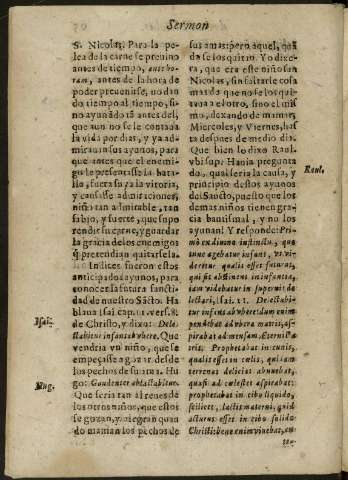 Sermon
S. Nicolas. Para la pe-
lea de la carne se preuino
antes de tiempo, ante ho-
ram, antes de la hora de
poder preuenirse, no dan
do tiempo al tiempo, si-
no ayunãdo tã antes del,
que aun no se le contaua
la vida por dias, y ya ad-
mirauan sus ayunos, para
que antes que el enemi-
go le presentasse la bata-
lla, fuera suya la vitoria,
y causasse admiraciones,
niño tan admirable, tan
sabio, y fuerte, que supo
rendir su carne, y guardar
la gracia de los enemigos
q̃ pretendian quitarsela.
Indices fueron estos
anticipados ayunos, para
conocer la futura santi-
dad de nuestro Sãcto. Ha
blaua Isai cap. 11. vers. 8.
de Christo, y dixo: Dele-
ctabitur infans ab vbere. Que
vendria vn niño, que se
empeçasse a gozar desde
los pechos de su ama. Hu
go: Gaudenter ablactabitur.
Que seria tan al reues de
los otros niños, que estos
se gozan, y alegran quan
do maman los pechos de
Isai.
Hug.
sus amas: pero aquel, quã
do se los quitẽ. Yo dixe-
ra, que era este niño san
Nicolas, sin faltarle cosa
mas de que no se los qui-
taua el otro, sino el mis-
mo, dexando de mamar,
Miercoles, y Viernes, has
ta despues de medio dia.
Que bien lo dixo Raul.
vbi sup. Hauia pregunta
do, qual seria la causa, y
principio destos ayunos
del Sãcto, puesto que los
demas niños tienen gra-
cia bautismal, y no los
ayunan? Y responde: Pri-
mò ex diuino instinctu, quo
tunc agebatur infans, vt vi-
deretur qualis esset futurus,
qui sic abstinens in infantia,
iam videbatur in supernis de
lectari, Isai. 11. Delectabi-
tur infans ab vbere: dum enim
pendebat ad vbera matris, as-
pirabat ad mensam Æterni
Patris. Prophetabat in cunis,
qualis esset in cœlis, qui iam
terrenas delicias abnuebat,
quasi ad cœlestes aspirabat:
prophetabat in cibo liquido,
scilicet, lactis materni, quid
acturus esset in cibo solido
Raul.